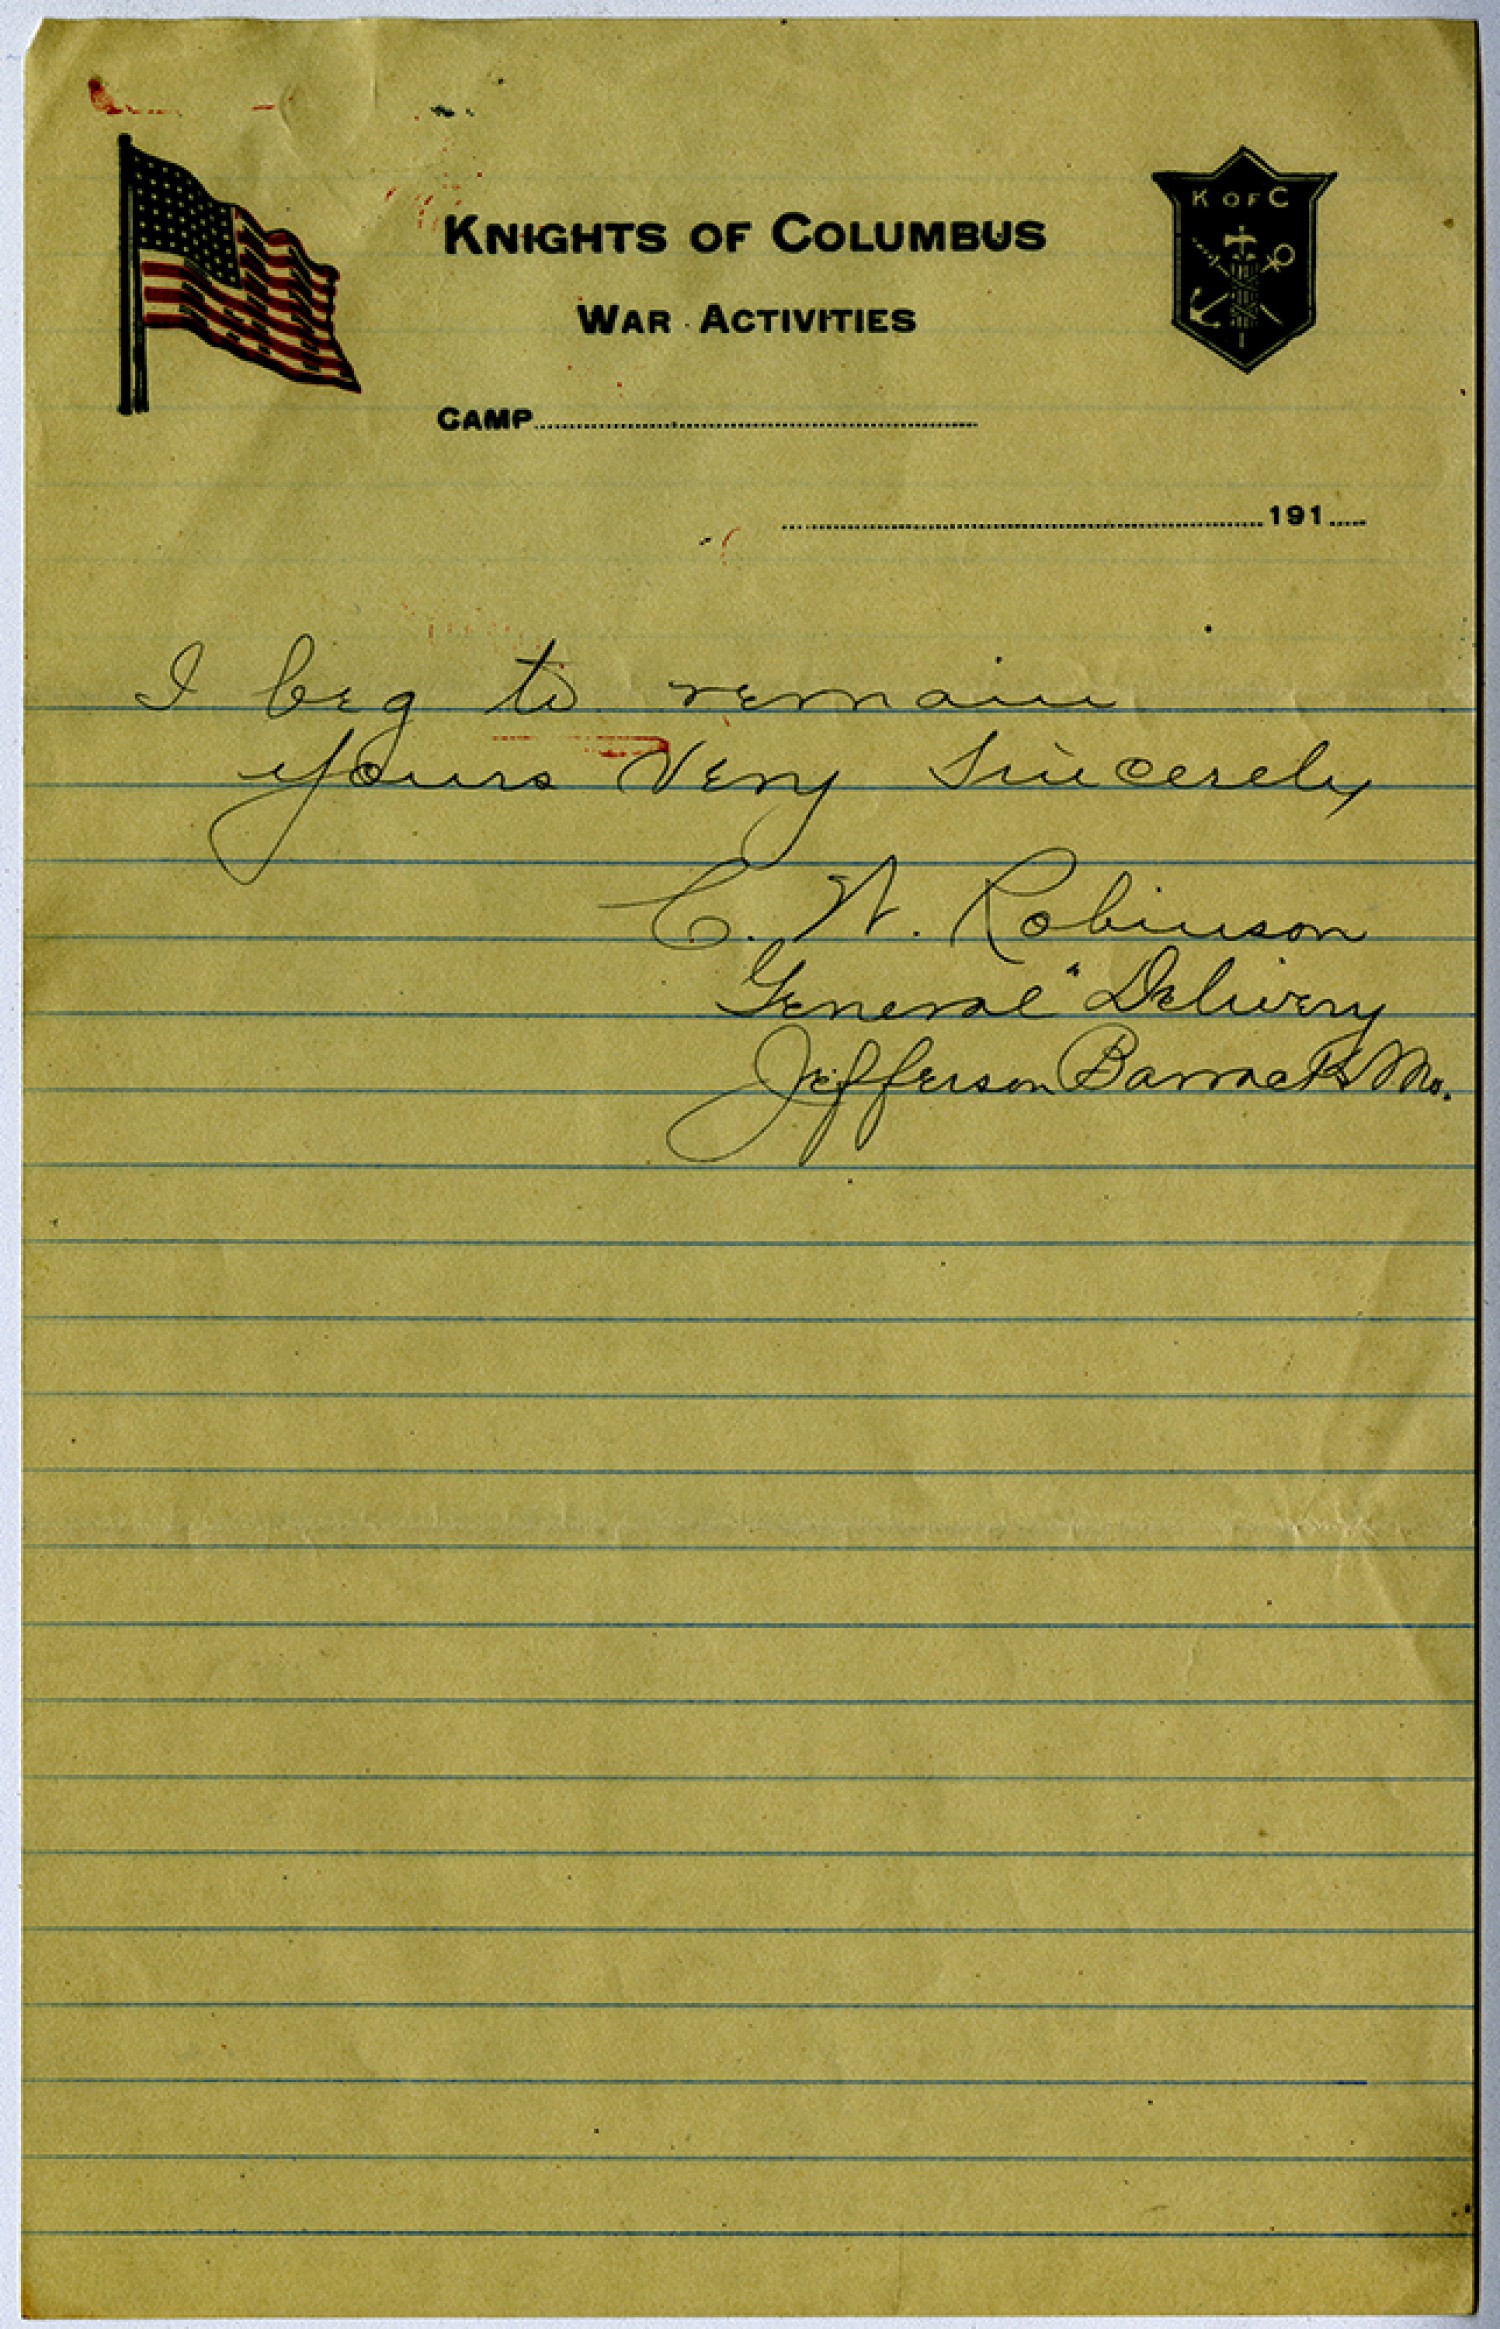 K OF C
KNIGHTS OF COLUMBUS
WAR ACTIVITIES
CAMP
191
I beg to remain
yours Very Sincerely
C. W. Robinson
General "Delivery
Jefferson Barracks Mo.